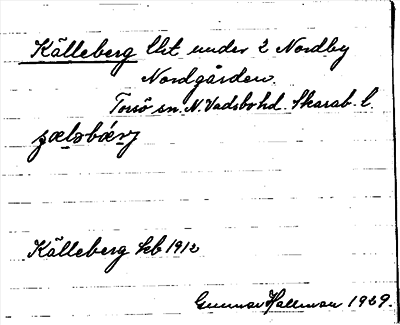 Källeberg lht under 2 Nordby
Nordgården.
Torsö sn. N. Vadsbo hd. Skarab. l.
Källeberg kb 1912
Gunnar Hallman 1929.